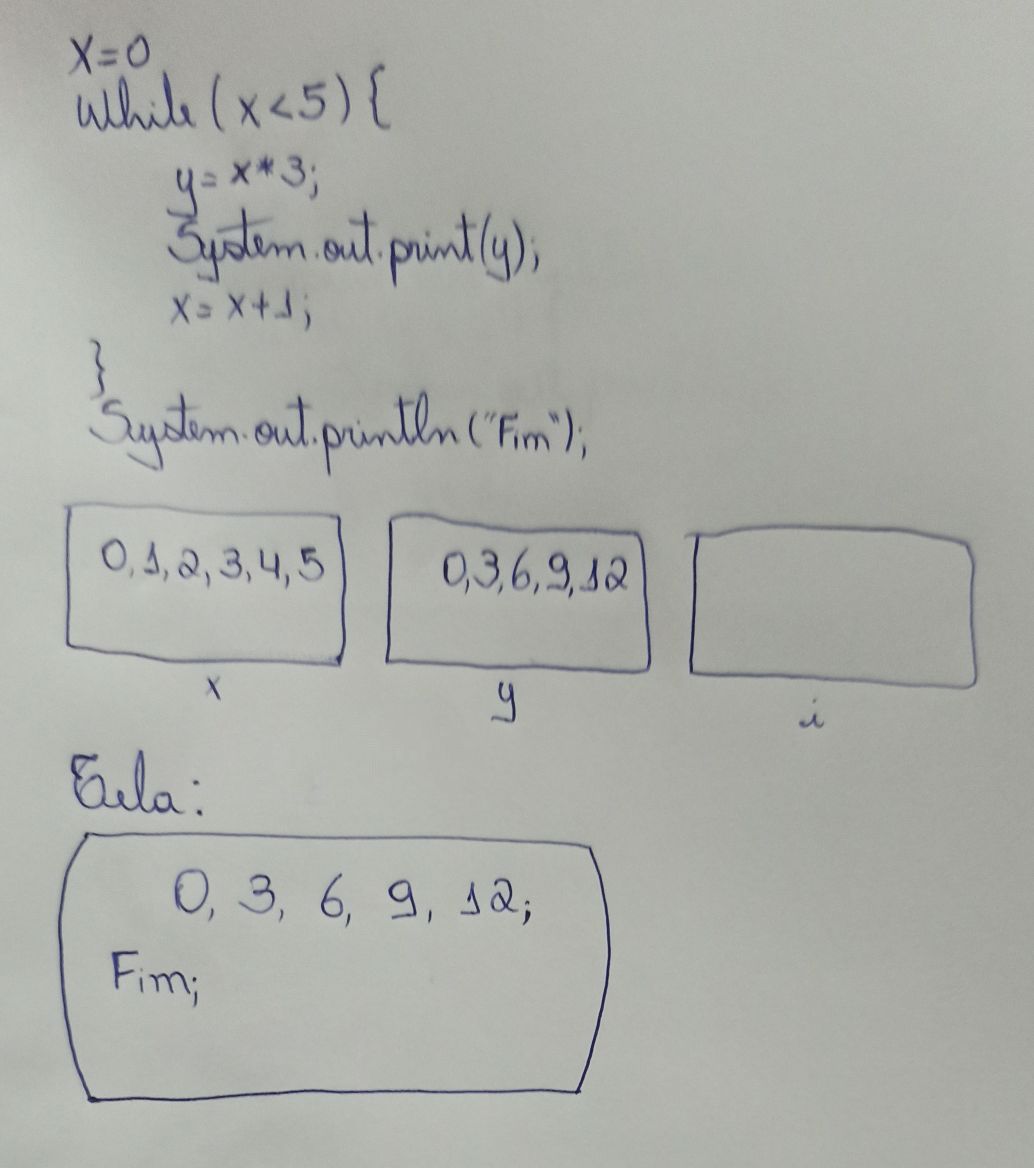 X=0
While (x<5) {
y=x*3;
System.out.print(y);
x=x+1;
}
System.out.println("Fim");
0,1,2,3,4,5 0,3,6,9,12
x y i
Tela:
0, 3, 6, 9, 12;
Fim;